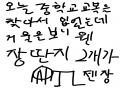 오늘 중학교 교복은
찾다서 입었는데
거울을 보니 웬
장딴지 2개가
젠장